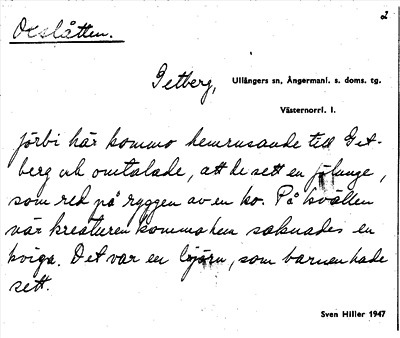 2
Ovslåtten.
Getberg, Ullångers sn, Ångermanl. s. doms. tg.
Västernorrl. l.
förbi här kommo hemrusande till Get-
berg och omtalade, att de sett en
som red på ryggen av en ko. På kvällen
när kreaturen kommo hem saknades en
kviga. Det var en björn, som barnen hade
sett.
Sven Hiller 1947